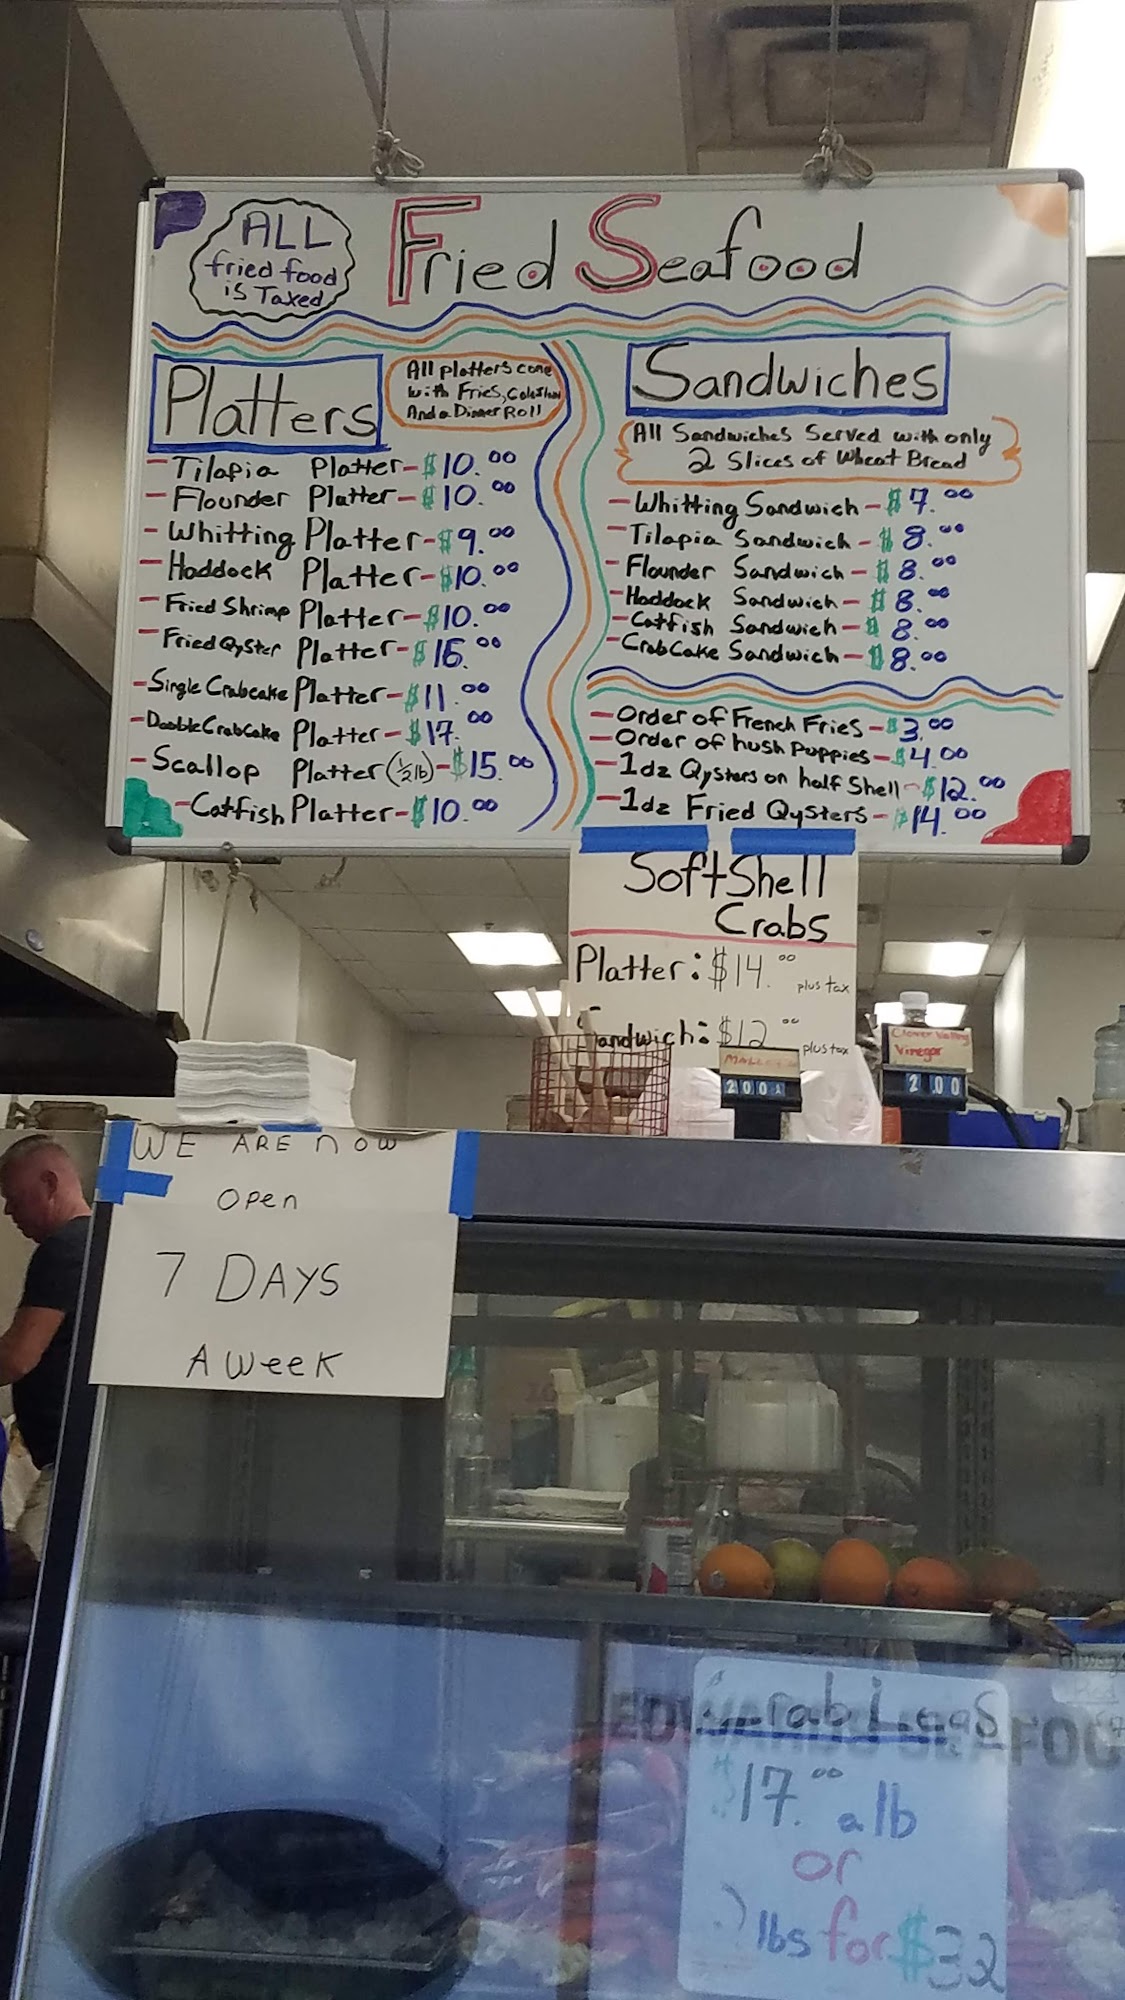 ALL
fried food
is Taxed
Fried Seafood
Platters
All platters come
with Fries, Coleslaw
And a Dinner Roll
- Tilapia Platter - $10.00
- Flounder Platter - $10.00
- Whitting Platter - $9.00
- Haddock Platter - $10.00
- Fried Shrimp Platter - $10.00
- Fried Oyster Platter - $15.00
- Single Crabcake Platter - $11.00
- Double CrabCake Platter - $17.00
- Scallop Platter (1/2 lb) - $15.00
- Catfish Platter - $10.00
Sandwiches
All Sandwiches Served with only
2 Slices of Wheat Bread
- Whitting Sandwich - $7.00
- Tilapia Sandwich - $8.00
- Flounder Sandwich - $8.00
- Haddock Sandwich - $8.00
- Catfish Sandwich - $8.00
- CrabCake Sandwich - $8.00
- Order of French Fries - $3.00
- Order of hush puppies - $4.00
- 1dz Oysters on half Shell - $12.00
- 1dz Fried Oysters - $14.00
SoftShell
Crabs
Platter: $14.00 plus tax
Sandwich: $12.00 plus tax
Vinegar
2.00
WE ARE now
open
7 DAYS
A WeeK
Crab Legs
$17.00 a lb
or
lbs for $32